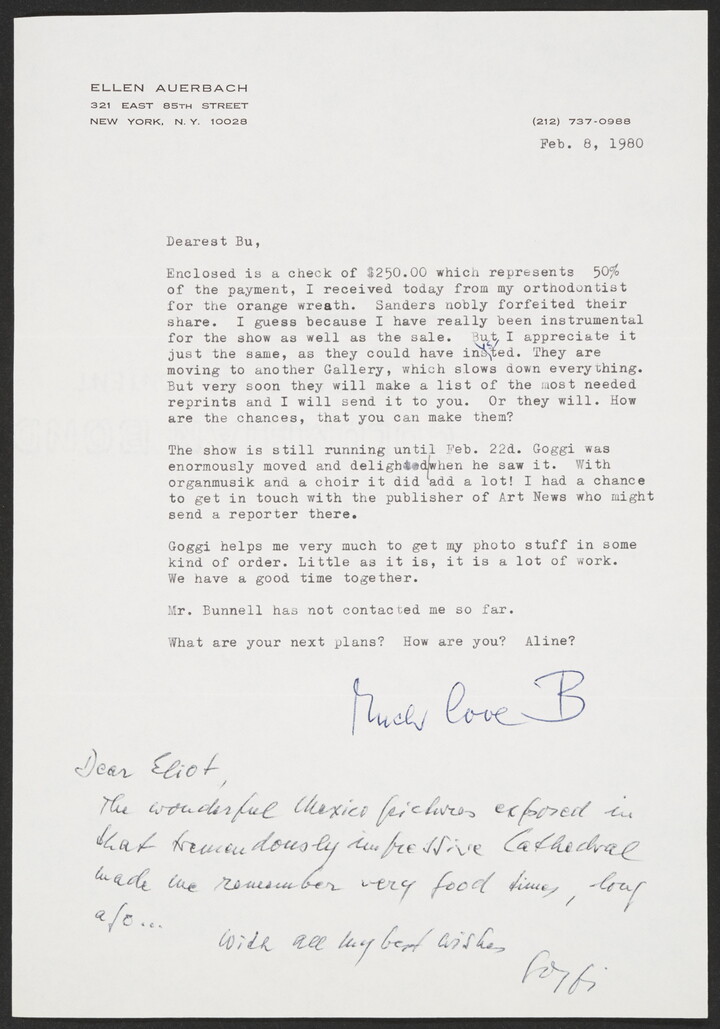 ELLEN AUERBACH
321 EAST 85TH STREET
NEW YORK, N. Y. 10028
(212) 737-0988
Feb. 8, 1980
Dearest Bu,
Enclosed is a check of $250.00 which represents 50%
of the payment, I received today from my orthodontist
for the orange wreath. Sanders nobly forfeited their
share. I guess because I have really been instrumental
for the show as well as the sale. But I appreciate it
just the same, as they could have insisted. They are
moving to another Gallery, which slows down everything.
But very soon they will make a list of the most needed
reprints and I will send it to you. Or they will. How
are the chances, that you can make them?
The show is still running until Feb. 22d. Goggi was
enormously moved and delighted when he saw it. With
organmusik and a choir it did add a lot! I had a chance
to get in touch with the publisher of Art News who might
send a reporter there.
Goggi helps me very much to get my photo stuff in some
kind of order. Little as it is, it is a lot of work.
We have a good time together.
Mr. Bunnell has not contacted me so far.
What are your next plans? How are you? Aline?
Much love B
Dear Eliot,
The wonderful Mexico pictures exposed in
that tremendously impressive Cathedral
made me remember very good times, long
ago...
with all my best wishes
Goggi